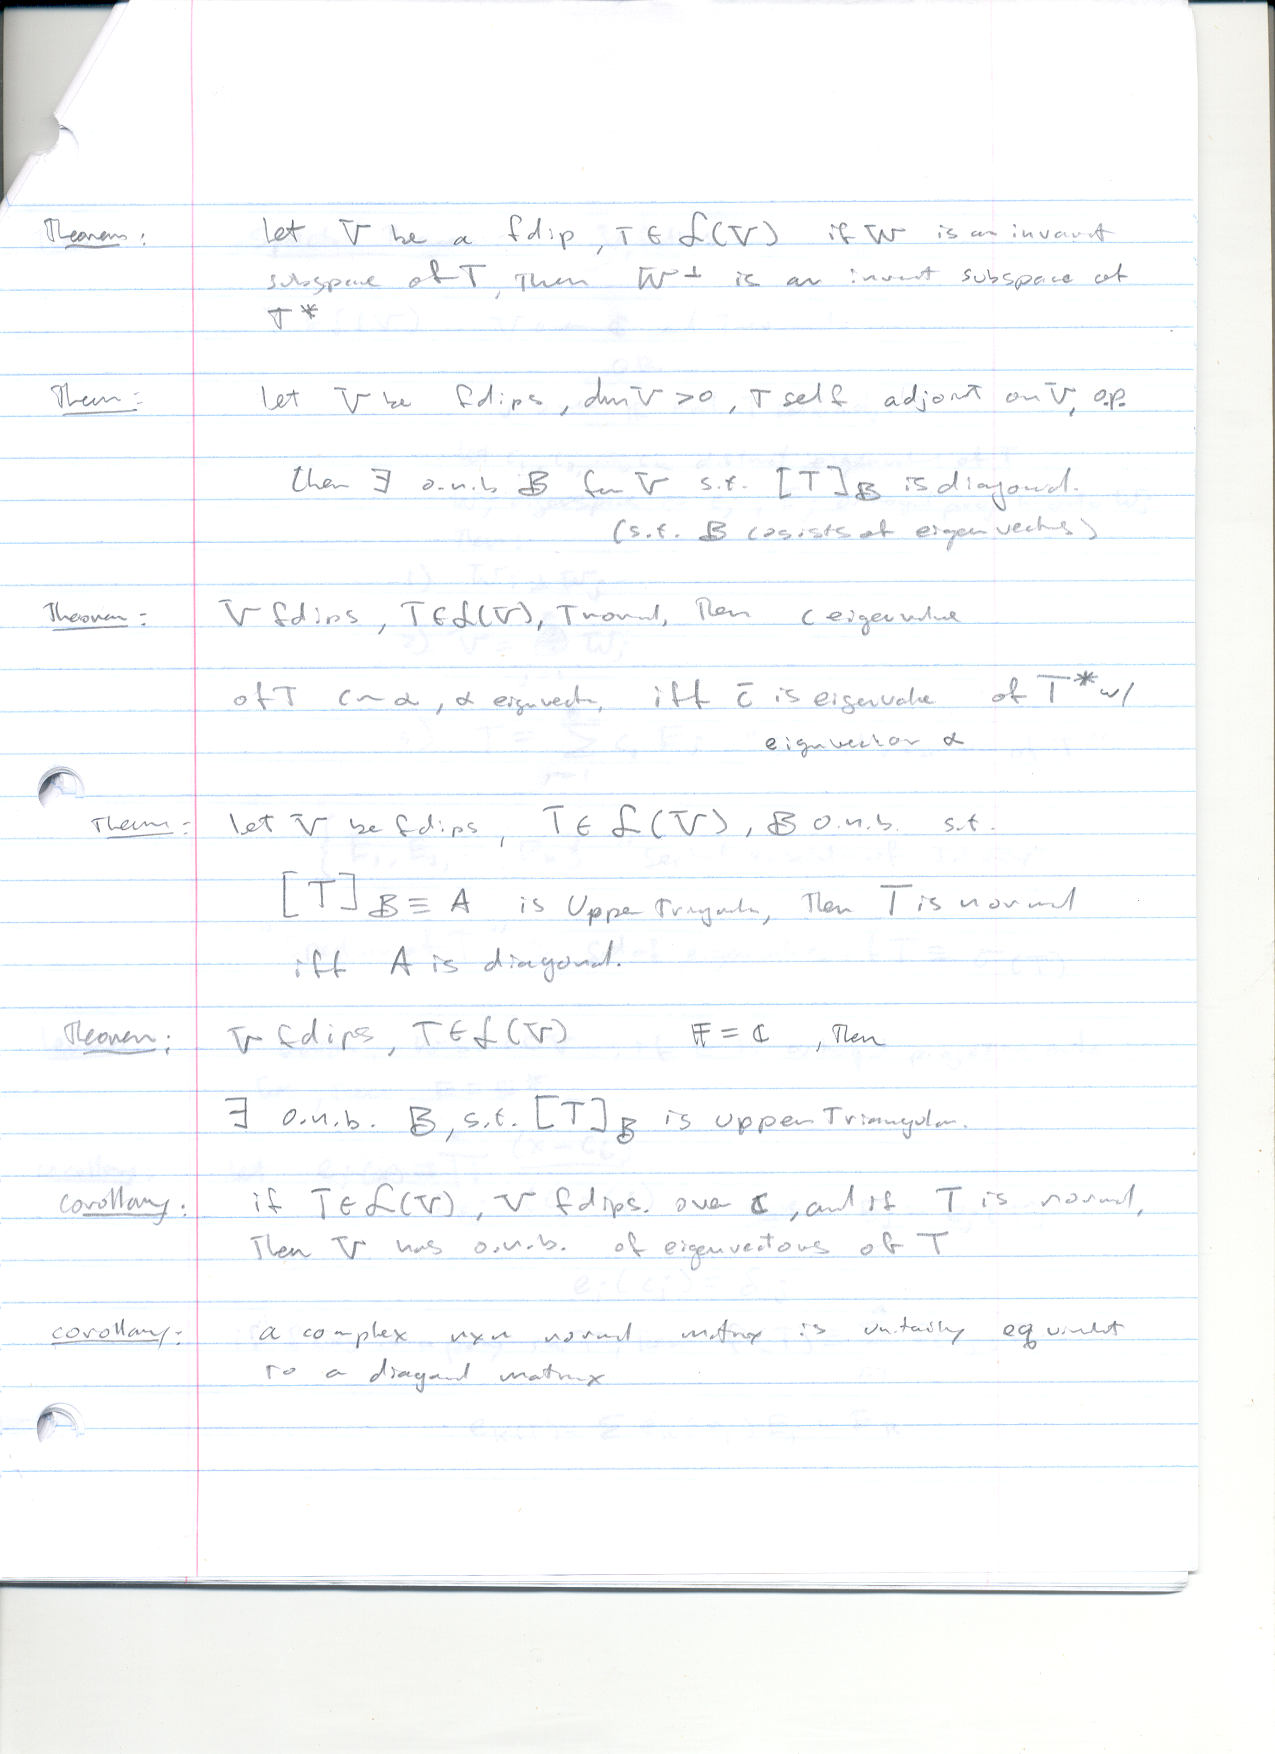 Theorem: let V be a fdip, T ∈ L(V) if W is an invarnt
subspace of T, Then W⊥ is an invart subspace of
T*
Them: let V be fdips, dim V > 0, T self adjoint on V, o.p.
then ∃ o.n.b B for V s.t. [T]B is diagonal.
(s.t. B cosists of eigenvectors)
Theorem: V fdips, T ∈ L(V), T normal, Then c eigenvalue
of T c ~ α, α eigenvector, iff c̄ is eigenvalue of T* w/
eigenvector α
Therm: let V be fdips, T ∈ L(V), B o.n.b. s.t.
[T]B ≡ A is Upper Triangular, Then T is normal
iff A is diagonal.
Theorem: V fdips, T ∈ L(V) F = C, Then
∃ o.n.b. B, s.t. [T]B is upper Triangular.
Corollary: if T ∈ L(V), V fdips. over C, and if T is normal,
Then V has o.n.b. of eigenvectors of T
corollary: a complex nxn normal matrix is unitarily equivalent
to a diagonal matrix